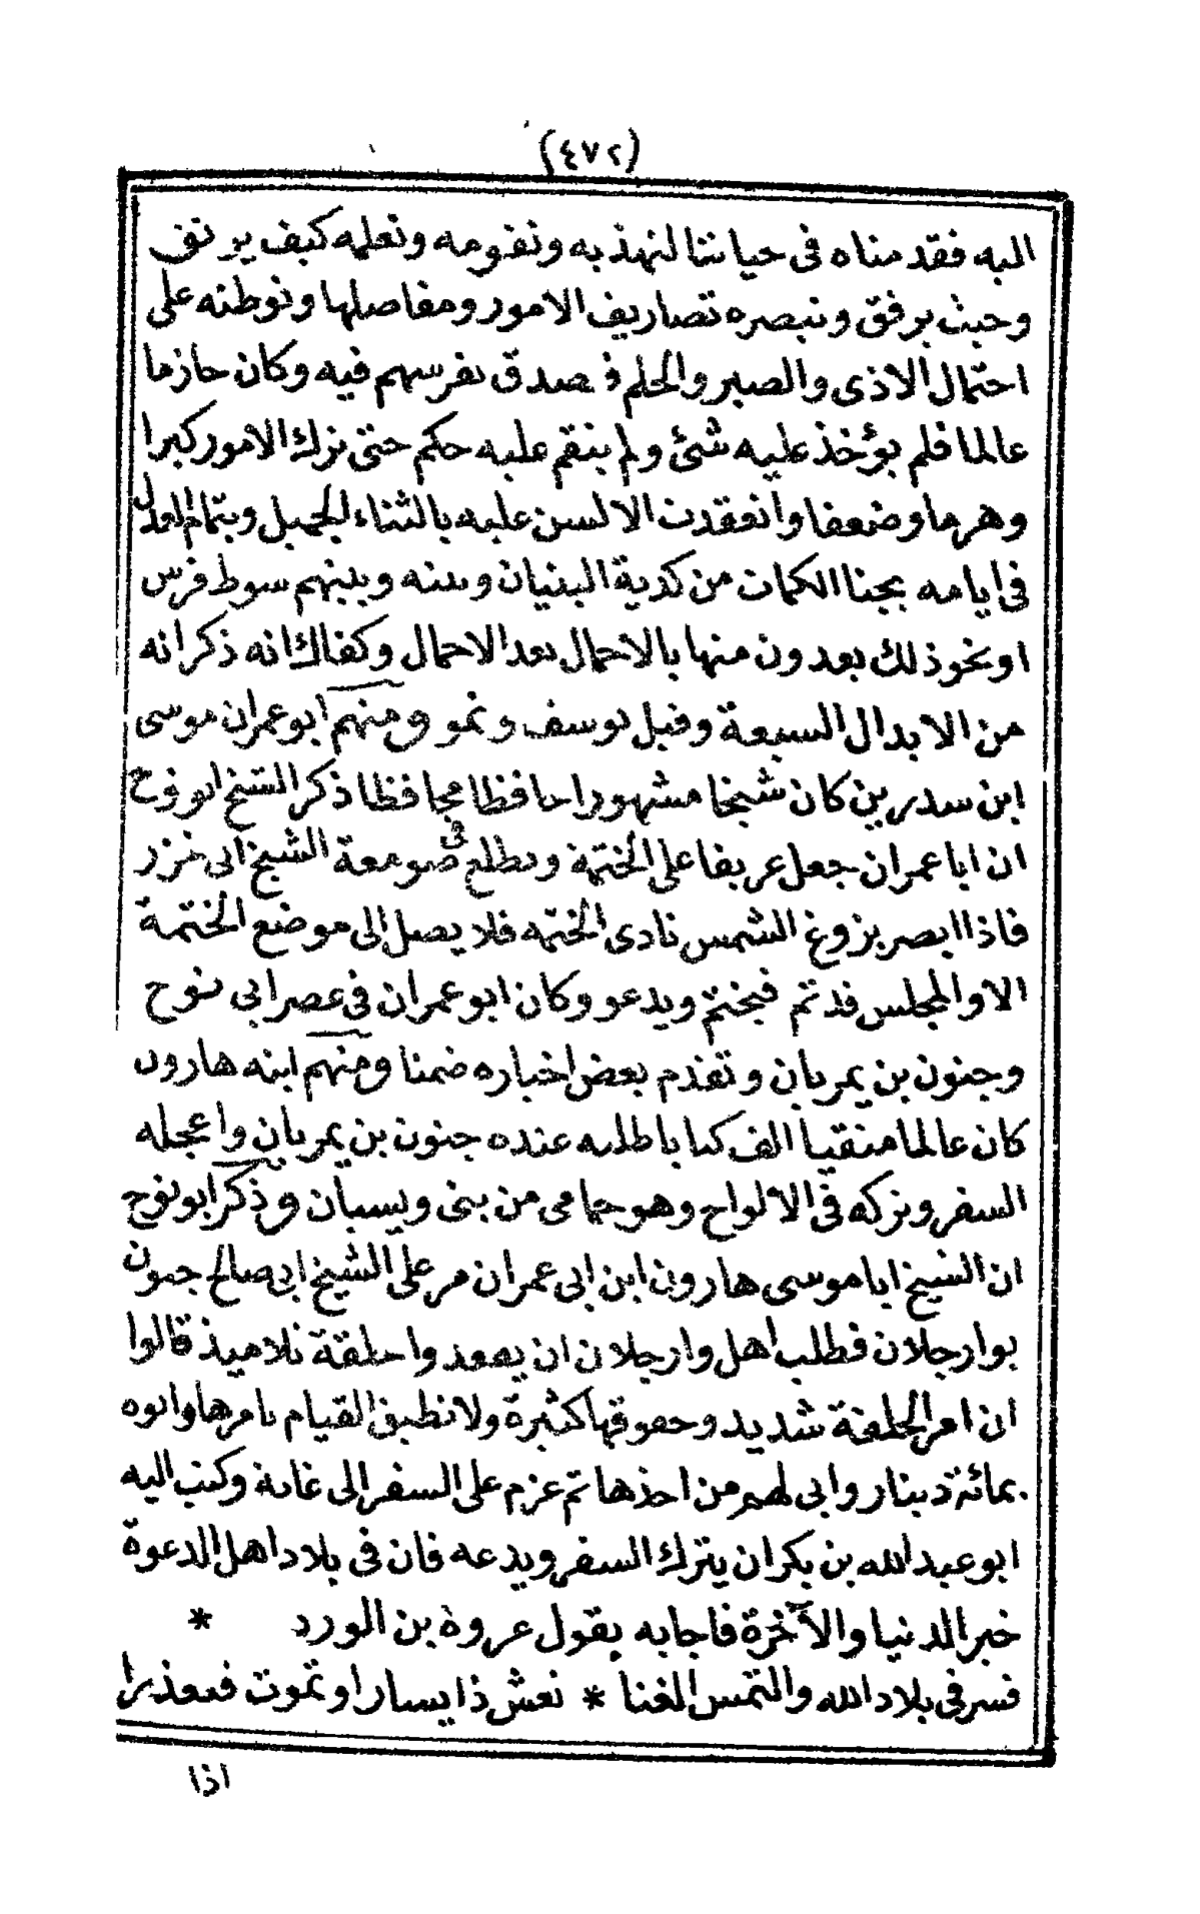 (٤٧٢)
اليه فقدمناه فى حياتنا لنهذبه ونقومه ونعلمه كيف يرتق
وحيث يرفق ونبصره تصاريف الامور ومفاصلها ونوطنه على
احتمال الاذى والصبر والحلم فصدق تفرسهم فيه وكان حازما
عالما فلم يؤخذ عليه شئ ولم ينقم عليه حكم حتى ترك الامور كبرا
وهرما وضعفا وانعقدت الالسن عليه بالثناء الجميل وبتمام العدل
فى ايامه يجنا الكمات من كدية البنيان وبينه وبينهم سوط فرس
اونحوذلك يعدون منها بالاحمال بعد الاحمال وكفاك انه ذكرانه
من الابدال السبعة وقيل يوسف ونمو ومنهم ابوعمران موسى
ابن سدرين كان شيخا مشهورا حافظا محافظا ذكر الشيخ ابونوح
ان ابا عمران جعل عريفا على الختمة ويطلع فى صومعة الشيخ ابى خزر
فاذا ابصر بزوغ الشمس نادى الختمه فلا يصل الى موضع الختمة
الا والمجلس قد تم فيختم ويدعو وكان ابوعمران فى عصر ابى نوح
وجنون بن يمريان وتقدم بعض اخباره ضمنا ومنهم ابنه هارون
كان عالما متقيا الف كتابا طلبه عنده جنون بن يمريان واعجله
السفر وتركه فى الالواح وهو حمامى من بنى ويسيان وذكر ابونوح
ان الشيخ اباموسى هارون ابن ابى عمران مر على الشيخ ابى صالح جنون
بوارجلان فطلب اهل وارجلان ان يعقدوا حلقة تلاميذ قالوا
ان امر الحلقة شديد وحقوقها كثيرة ولا نطيق القيام بامرها واتوه
بمائة دينار وابى لهم من اخذها ثم عزم على السفر الى غانة وكتب اليه
ابوعبد الله بن بكران يترك السفر ويدعه فان فى بلاد اهل الدعوة
خير الدنيا والآخرة فاجابه بقول عروة بن الورد *
فسر فى بلاد الله والتمس الغنا * تعش ذا يسار او تموت فتعذرا
اذا